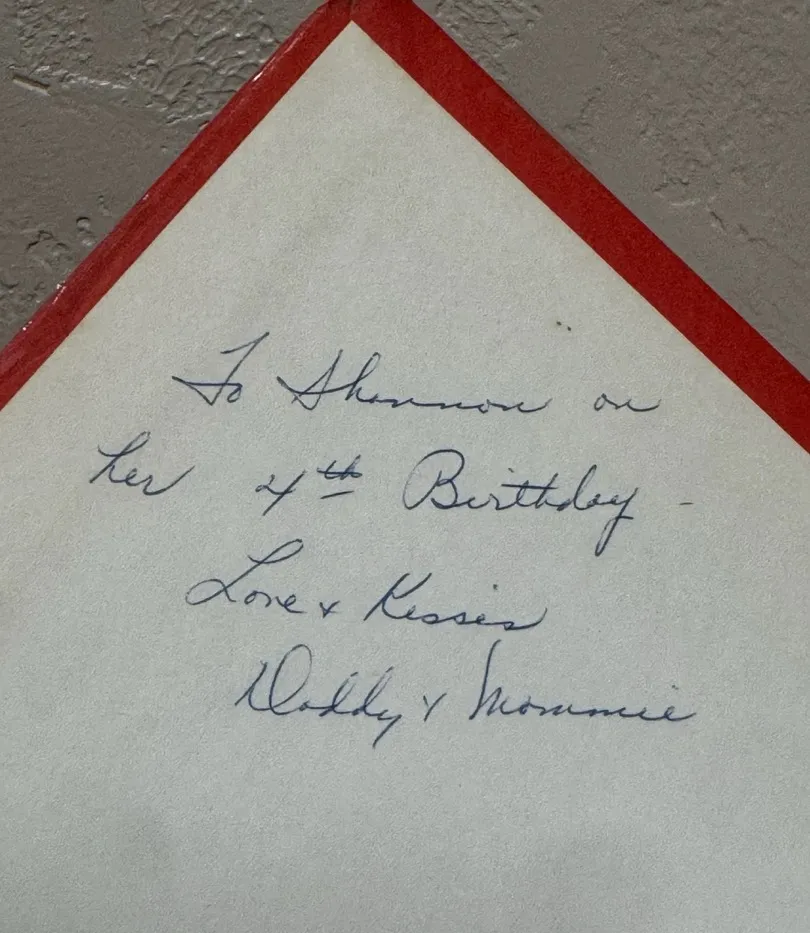 To Shannon on
her 4th Birthday -
Love & Kisses
Daddy & Mommie